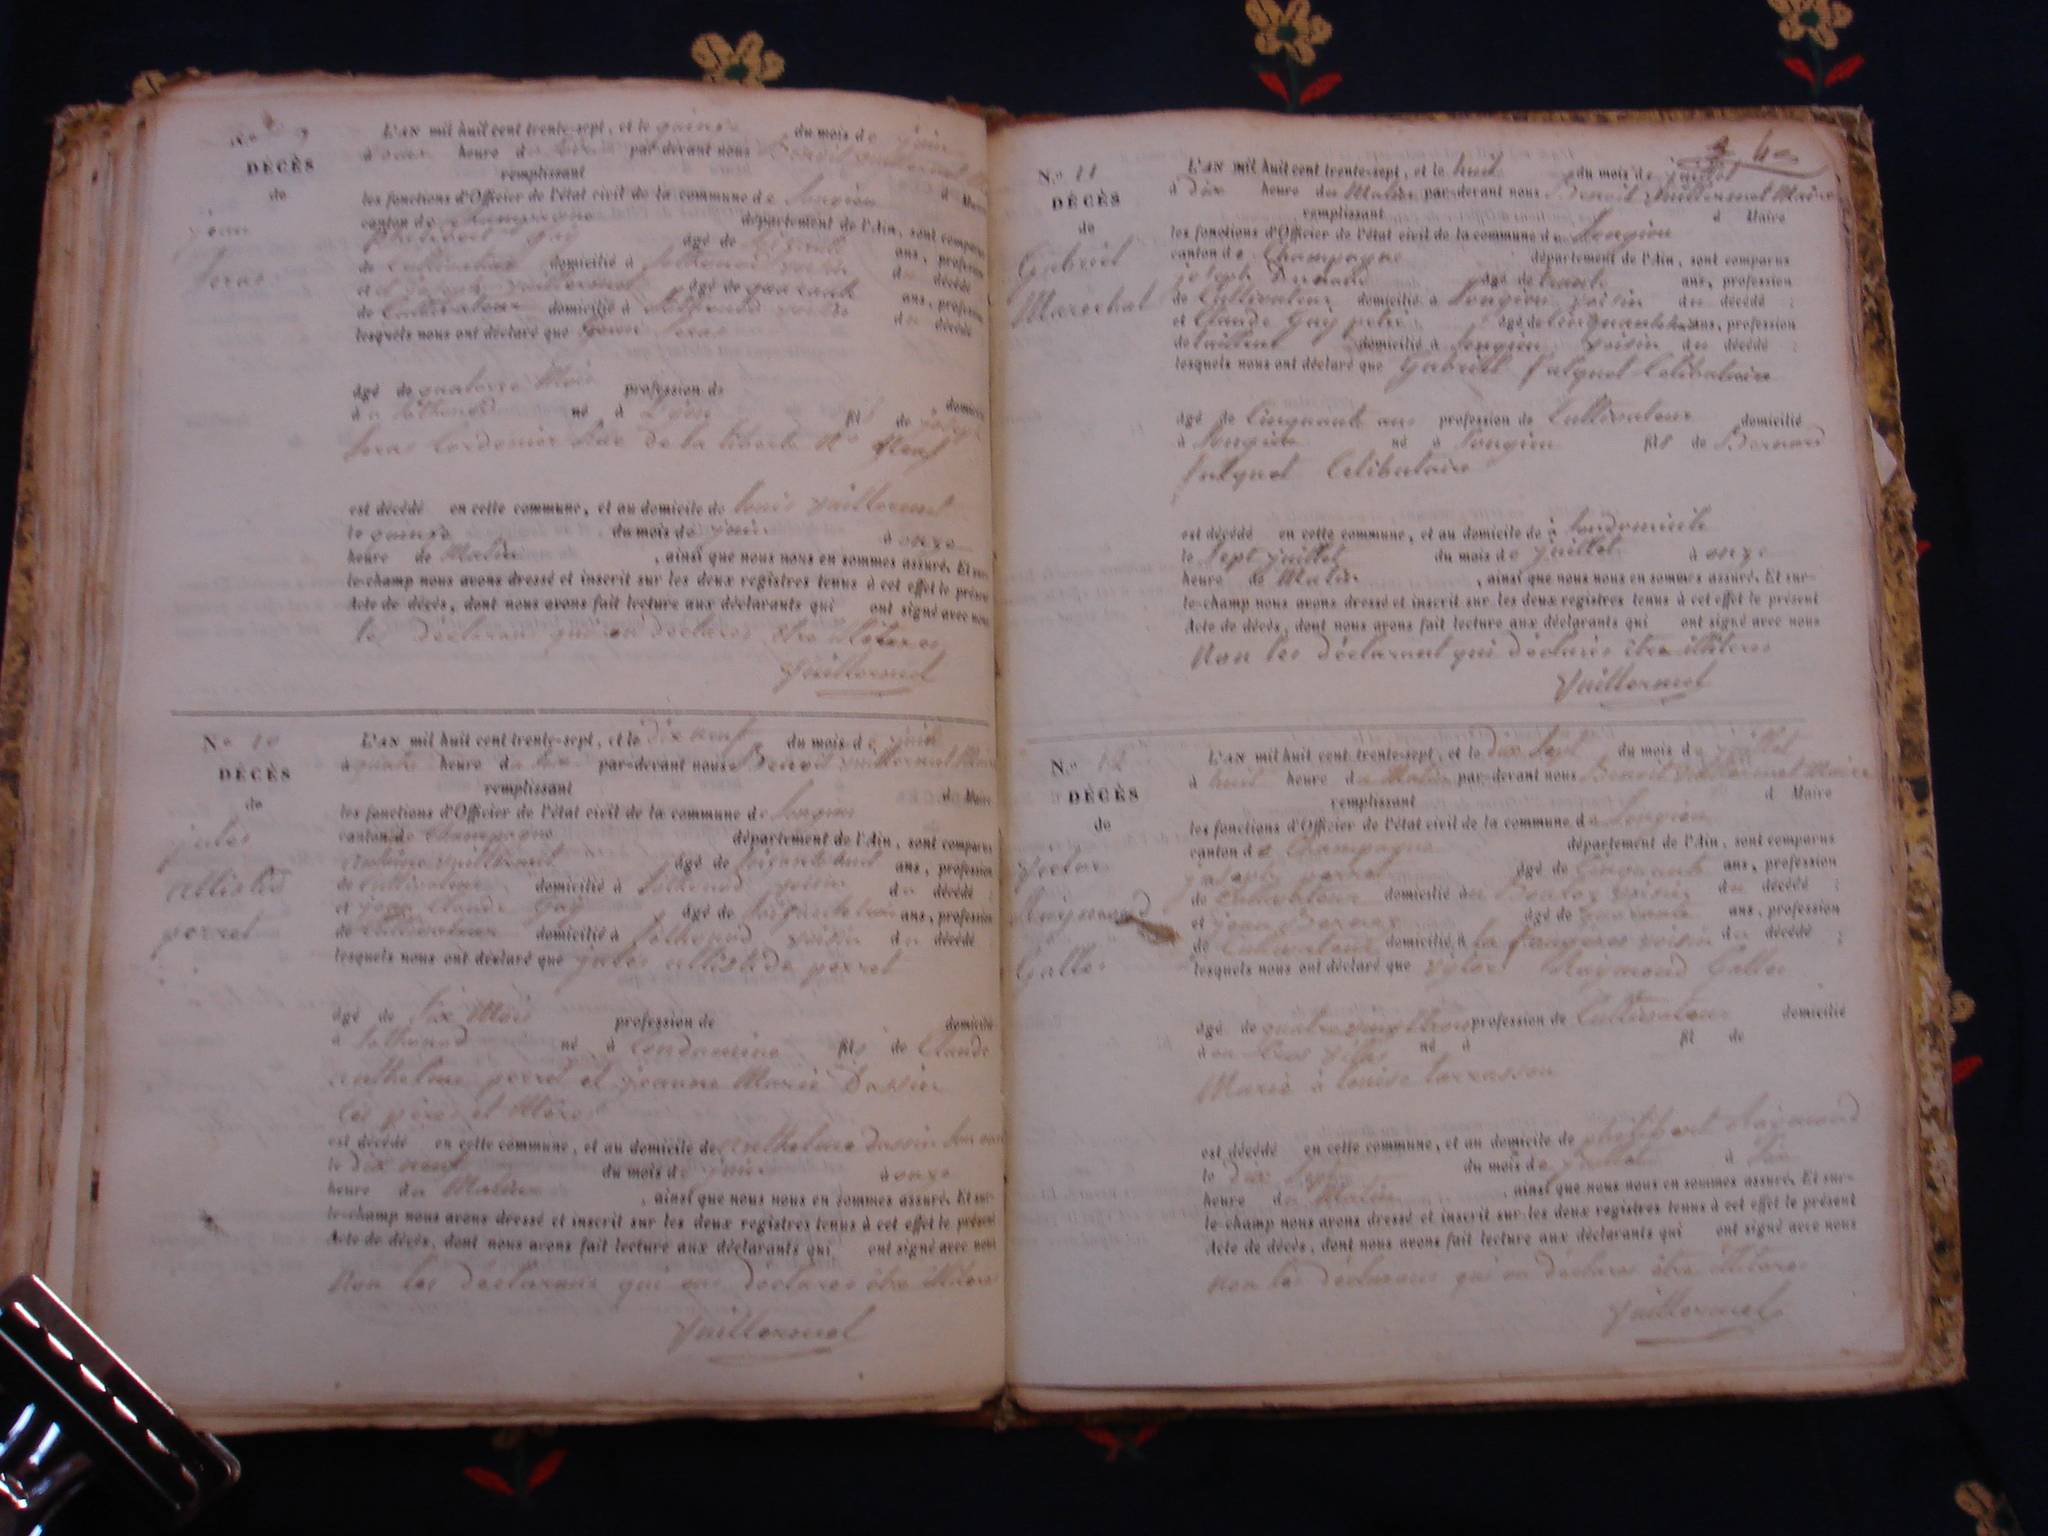 N.o 9
DÉCÈS
de
jean
feras
L'AN mil huit cent trente-sept, et le quinze du mois de juin
à onze heure d par-devant nous Benoit vuillermet
remplissant d Maire
les fonctions d'Officier de l'état civil de la commune de Songieu
canton de Champagne département de l'Ain, sont comparus
guy âgé de ans, profession
de Cultivateur domicilié à Sothonod voisin du décédé
et joseph vuillermet âgé de quarante ans, profession
de Cultivateur domicilié à Sothonod voisin du décédé
lesquels nous ont déclaré que jean feras
âgé de quatorze Mois profession de domicilié
à Sothonod né à Lyon fils de
feras Cordonier Rue de la liberté No Neuf
est décédé en cette commune, et au domicile de louis vuillermet
le quinze du mois de juin à onze
heure de Matin , ainsi que nous nous en sommes assuré. Et sur-
le-champ nous avons dressé et inscrit sur les deux registres tenus à cet effet le présent
Acte de décès, dont nous avons fait lecture aux déclarants qui ont signé avec nous
les déclarans qui on déclares être illiteres
Vuillermet
N.o 10
DÉCÈS
de
jules
allistide
perret
L'AN mil huit cent trente-sept, et le dix neuf du mois de juin
à quatre heure du par-devant nous Benoit vuillermet Maire
remplissant d Maire
les fonctions d'Officier de l'état civil de la commune de Songieu
canton de Champagne département de l'Ain, sont comparus
âgé de ans, profession
de Cultivateur domicilié à Sothonod voisin du décédé ;
et jean Claude Guy âgé de ans, profession
de Cultivateur domicilié à Sothonod voisin du décédé
lesquels nous ont déclaré que jules allistide perret
âgé de Six Mois profession de domicilié
à Sothonod né à Condamine fils de Claude
anthelme perret et jeanne Marie Dassin
les père et Mère
est décédé en cette commune, et au domicile de anthelme Dassin
le dix neuf du mois de juin à onze
heure du Matin , ainsi que nous nous en sommes assuré. Et sur-
le-champ nous avons dressé et inscrit sur les deux registres tenus à cet effet le présent
Acte de décès, dont nous avons fait lecture aux déclarants qui ont signé avec nous
Non les déclarans qui on déclares être illiteres
Vuillermet
N.o 11
DÉCÈS
de
Gabriel
Marechal
L'AN mil huit cent trente-sept, et le huit du mois de juillet
à dix heure du Matin par-devant nous Benoit Vuillermet Maire
remplissant d Maire
les fonctions d'Officier de l'état civil de la commune de Songieu
canton de Champagne département de l'Ain, sont comparus
joseph Durand âgé de trente ans, profession
de Cultivateur domicilié à Songieu voisin du décédé ;
et Claude Guy âgé de ans, profession
de tailleur domicilié à Songieu voisin du décédé ;
lesquels nous ont déclaré que Gabriel fulquet Celibataire
âgé de Cinquante ans profession de Cultivateur domicilié
à Songieu né à Songieu fils de Bernard
fulquet Celibataire
est décédé en cette commune, et au domicile de à Sondomicile
le Sept juillet du mois de juillet à onze
heure de Matin , ainsi que nous nous en sommes assuré. Et sur-
le-champ nous avons dressé et inscrit sur les deux registres tenus à cet effet le présent
Acte de décès, dont nous avons fait lecture aux déclarants qui ont signé avec nous
Non les déclarant qui déclarés être illiteres
Vuillermet
N.o 12
DÉCÈS
de
Victor
Raymond
Gallet
L'AN mil huit cent trente-sept, et le dix Sept du mois de juillet
à huit heure du Matin par-devant nous Benoit Vuillermet Maire
remplissant d Maire
les fonctions d'Officier de l'état civil de la commune de Songieu
canton de Champagne département de l'Ain, sont comparus
joseph perret âgé de Cinquante ans, profession
de Cultivateur domicilié voisin du décédé ;
et jean Bornaz âgé de quarante ans, profession
de Cultivateur domicilié à voisin du décédé ;
lesquels nous ont déclaré que Raymond Gallet
âgé de profession de Cultivateur domicilié
à né à fil de
Marié à louise tarrasson
est décédé en cette commune, et au domicile de philibert Raymond
le dix Sept du mois de juillet à Six
heure du Matin , ainsi que nous nous en sommes assuré. Et sur-
le-champ nous avons dressé et inscrit sur les deux registres tenus à cet effet le présent
Acte de décès, dont nous avons fait lecture aux déclarants qui ont signé avec nous
Non les déclarans qui on déclares être illiteres
Vuillermet